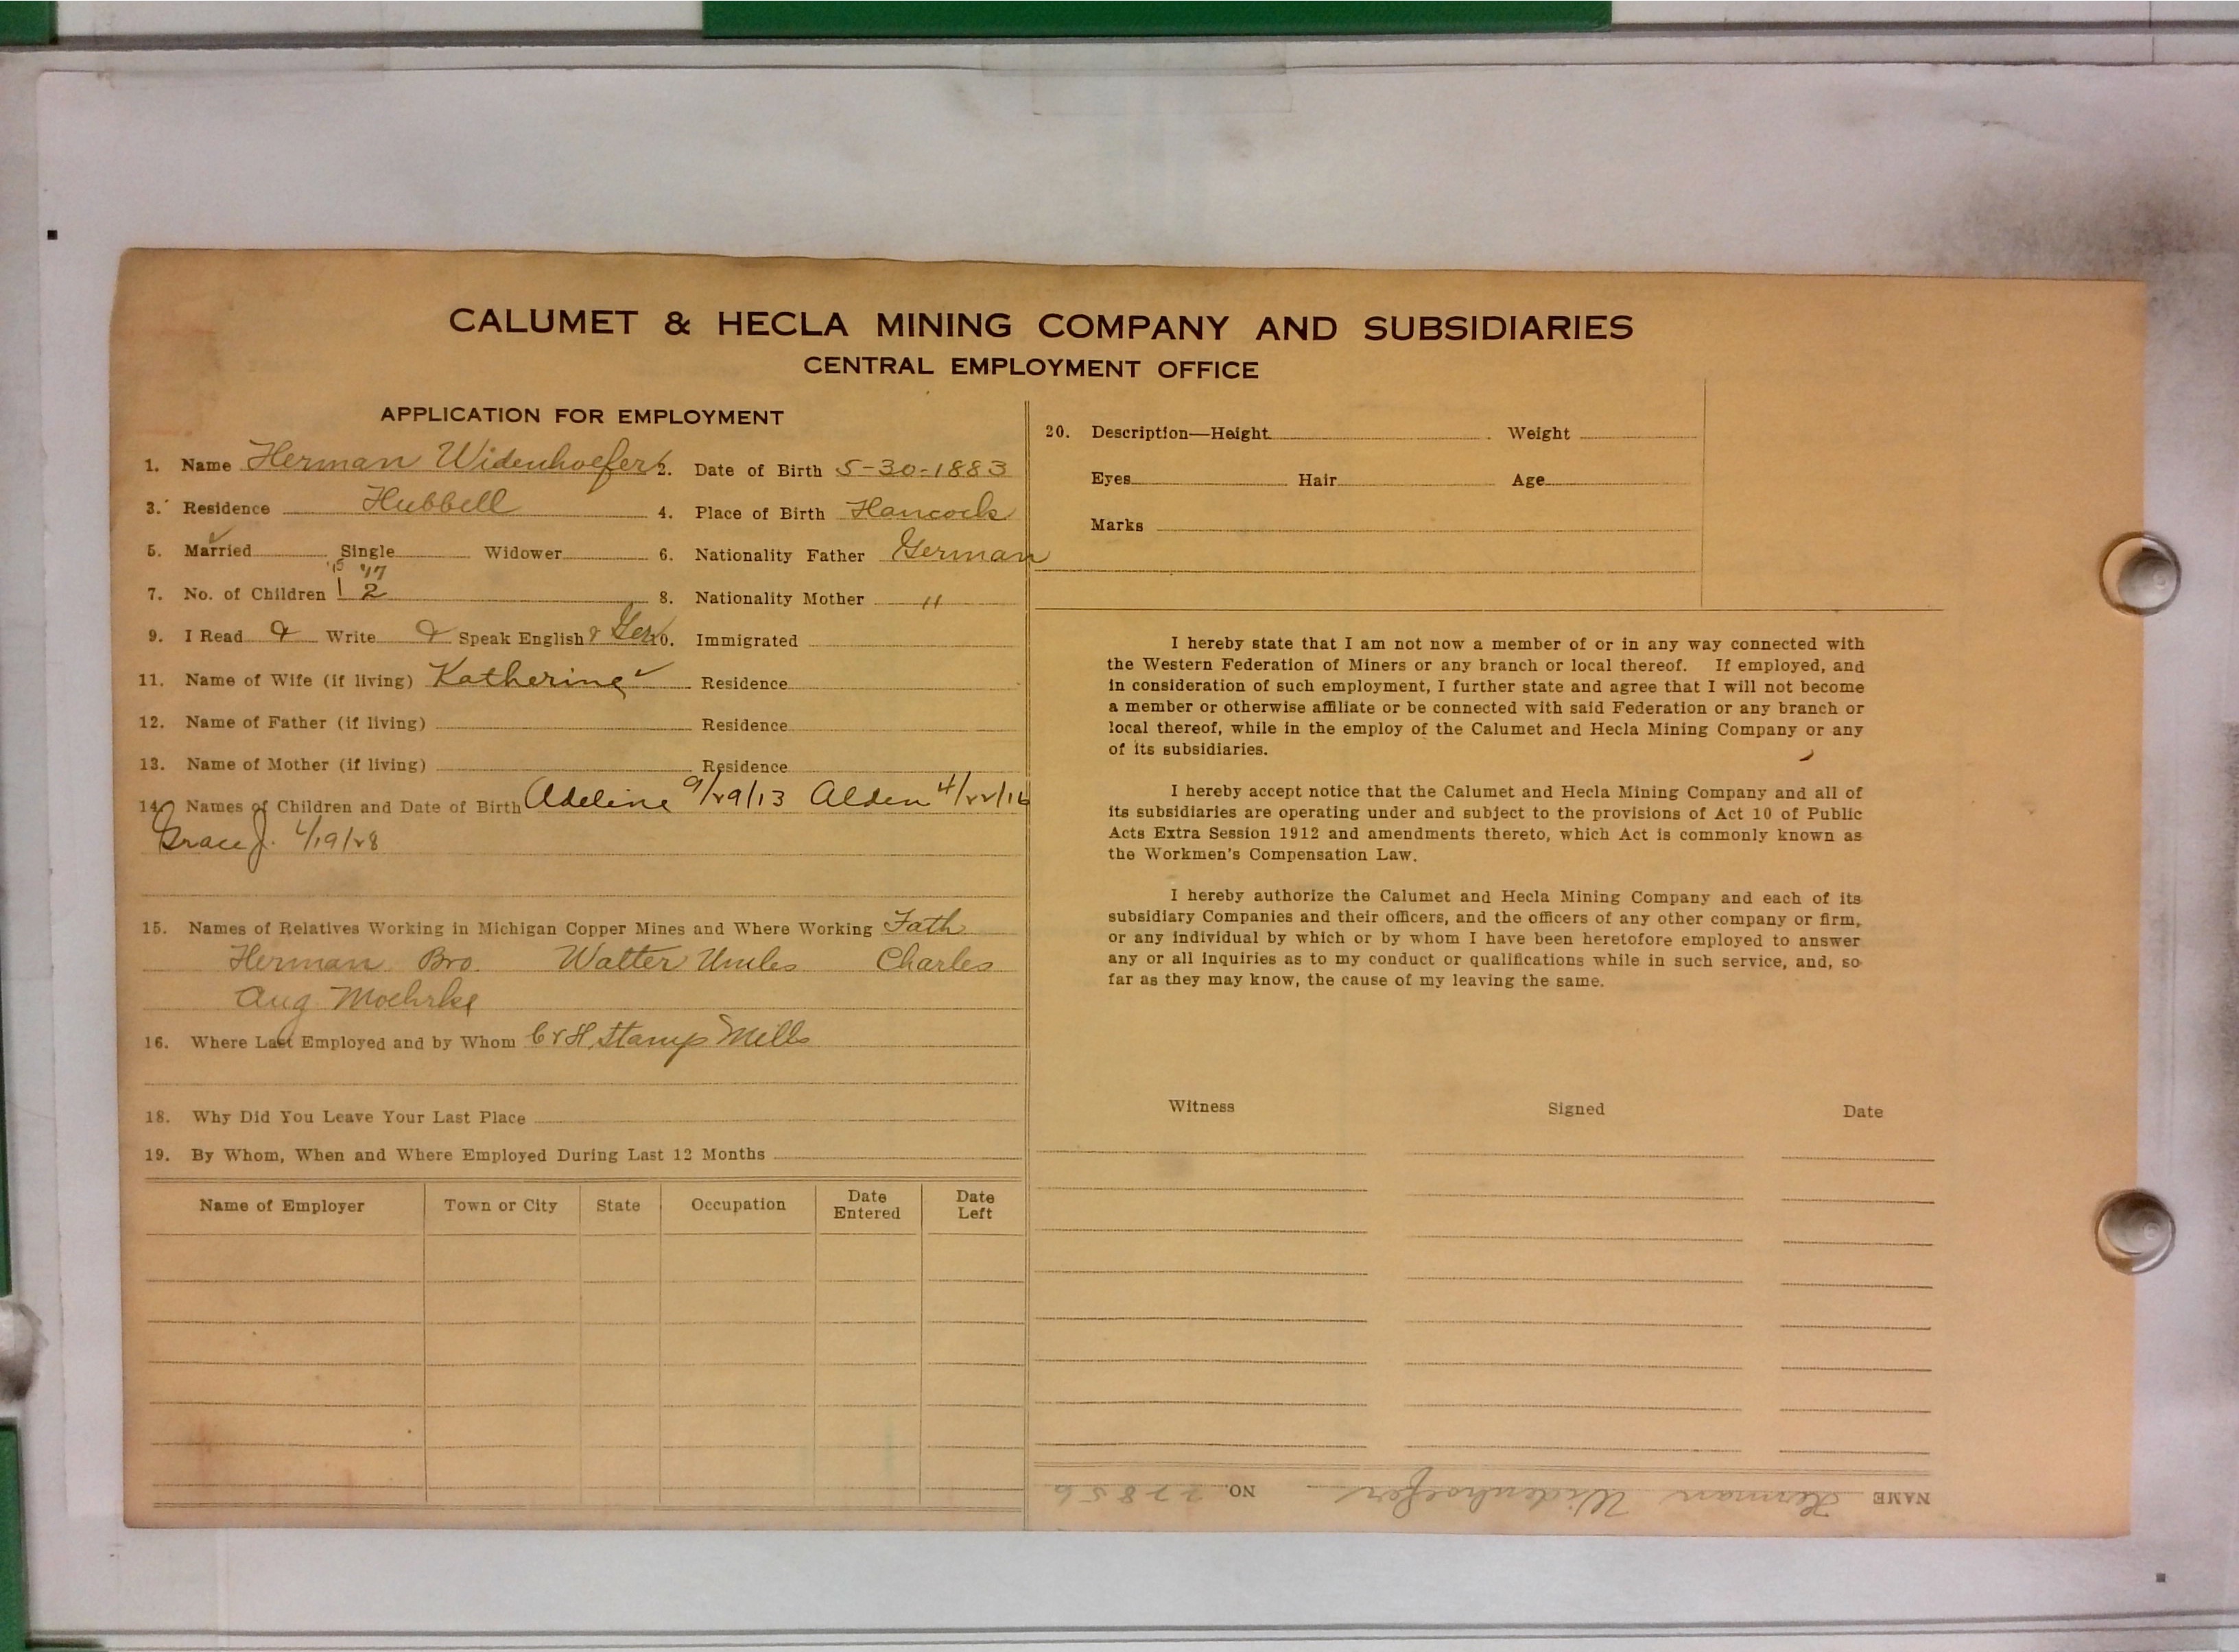 CALUMET & HECLA MINING COMPANY AND SUBSIDIARIES
CENTRAL EMPLOYMENT OFFICE
APPLICATION FOR EMPLOYMENT
1. Name Herman Widenhoefer 2. Date of Birth 5-30-1883
3. Residence Hubbell 4. Place of Birth Hancock
5. Married ✓ Single Widower 6. Nationality Father German
'15 '17
7. No. of Children 1 2 8. Nationality Mother "
9. I Read & Write & Speak English & Ger 10. Immigrated
11. Name of Wife (if living) Katherine ✓ Residence
12. Name of Father (if living) Residence
13. Name of Mother (if living) Residence
14. Names of Children and Date of Birth Adeline 9/29/13 Alden 4/22/16
Grace J. 4/19/28
15. Names of Relatives Working in Michigan Copper Mines and Where Working Fath
Herman Bro. Walter Uncles Charles
Aug Moehrke
16. Where Last Employed and by Whom C & H. Stamp Mills
18. Why Did You Leave Your Last Place
19. By Whom, When and Where Employed During Last 12 Months
Name of Employer Town or City State Occupation Date Entered Date Left
20. Description—Height Weight
Eyes Hair Age
Marks
I hereby state that I am not now a member of or in any way connected with
the Western Federation of Miners or any branch or local thereof. If employed, and
in consideration of such employment, I further state and agree that I will not become
a member or otherwise affiliate or be connected with said Federation or any branch or
local thereof, while in the employ of the Calumet and Hecla Mining Company or any
of its subsidiaries.
I hereby accept notice that the Calumet and Hecla Mining Company and all of
its subsidiaries are operating under and subject to the provisions of Act 10 of Public
Acts Extra Session 1912 and amendments thereto, which Act is commonly known as
the Workmen's Compensation Law.
I hereby authorize the Calumet and Hecla Mining Company and each of its
subsidiary Companies and their officers, and the officers of any other company or firm,
or any individual by which or by whom I have been heretofore employed to answer
any or all inquiries as to my conduct or qualifications while in such service, and, so
far as they may know, the cause of my leaving the same.
Witness Signed Date
NAME Herman Widenhoefer NO. 22856